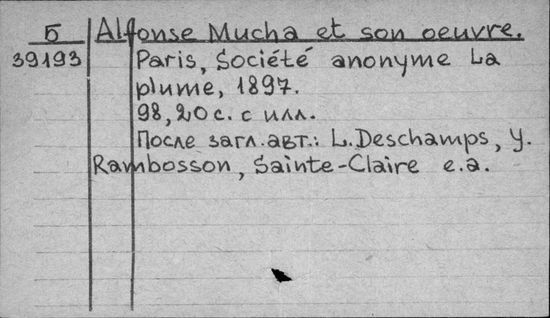 Б Alfonse Mucha et son oeuvre.
39193 Paris, Société anonyme La
plume, 1897.
98, 20 с. с илл.
После загл. авт.: L. Deschamps, Y.
Rambosson, Sainte-Claire e.a.